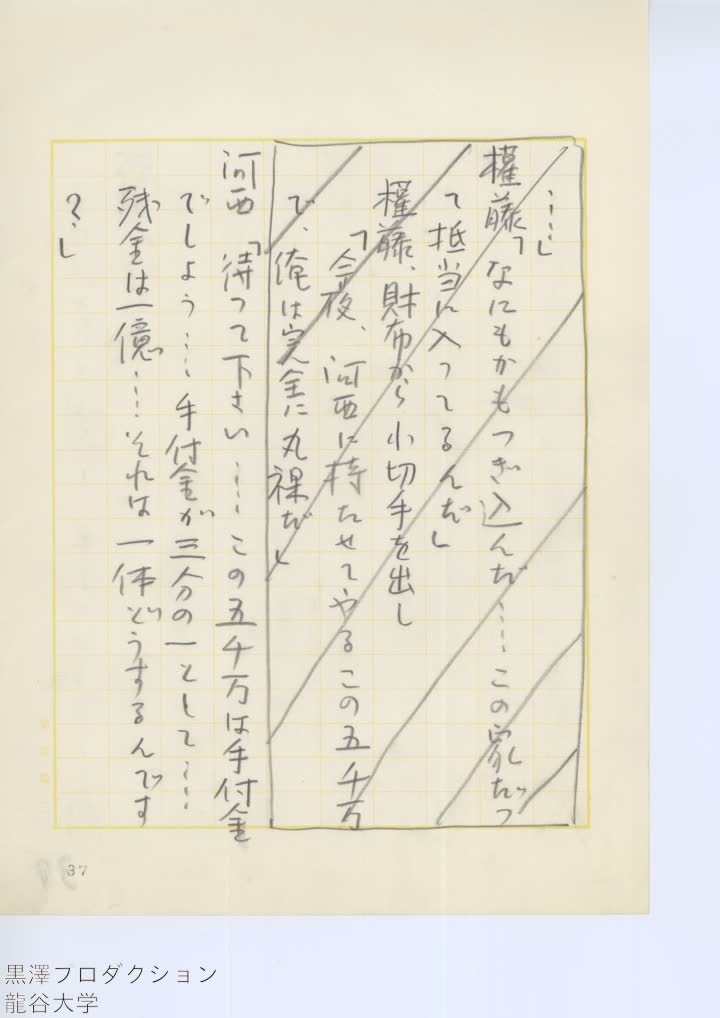 ……」
權藤「なにもかもつぎ込んだ……この家だっ
て抵当に入ってるんだ」
權藤、財布から小切手を出し
「今夜、河西に持たせてやるこの五千万
で、俺は完全に丸裸だ」
河西「待って下さい……この五千万は手付金
でしよう……手付金が三分の一として……
残金は一億……それは一体どうするんです
？」
37
黒澤プロダクション
龍谷大学